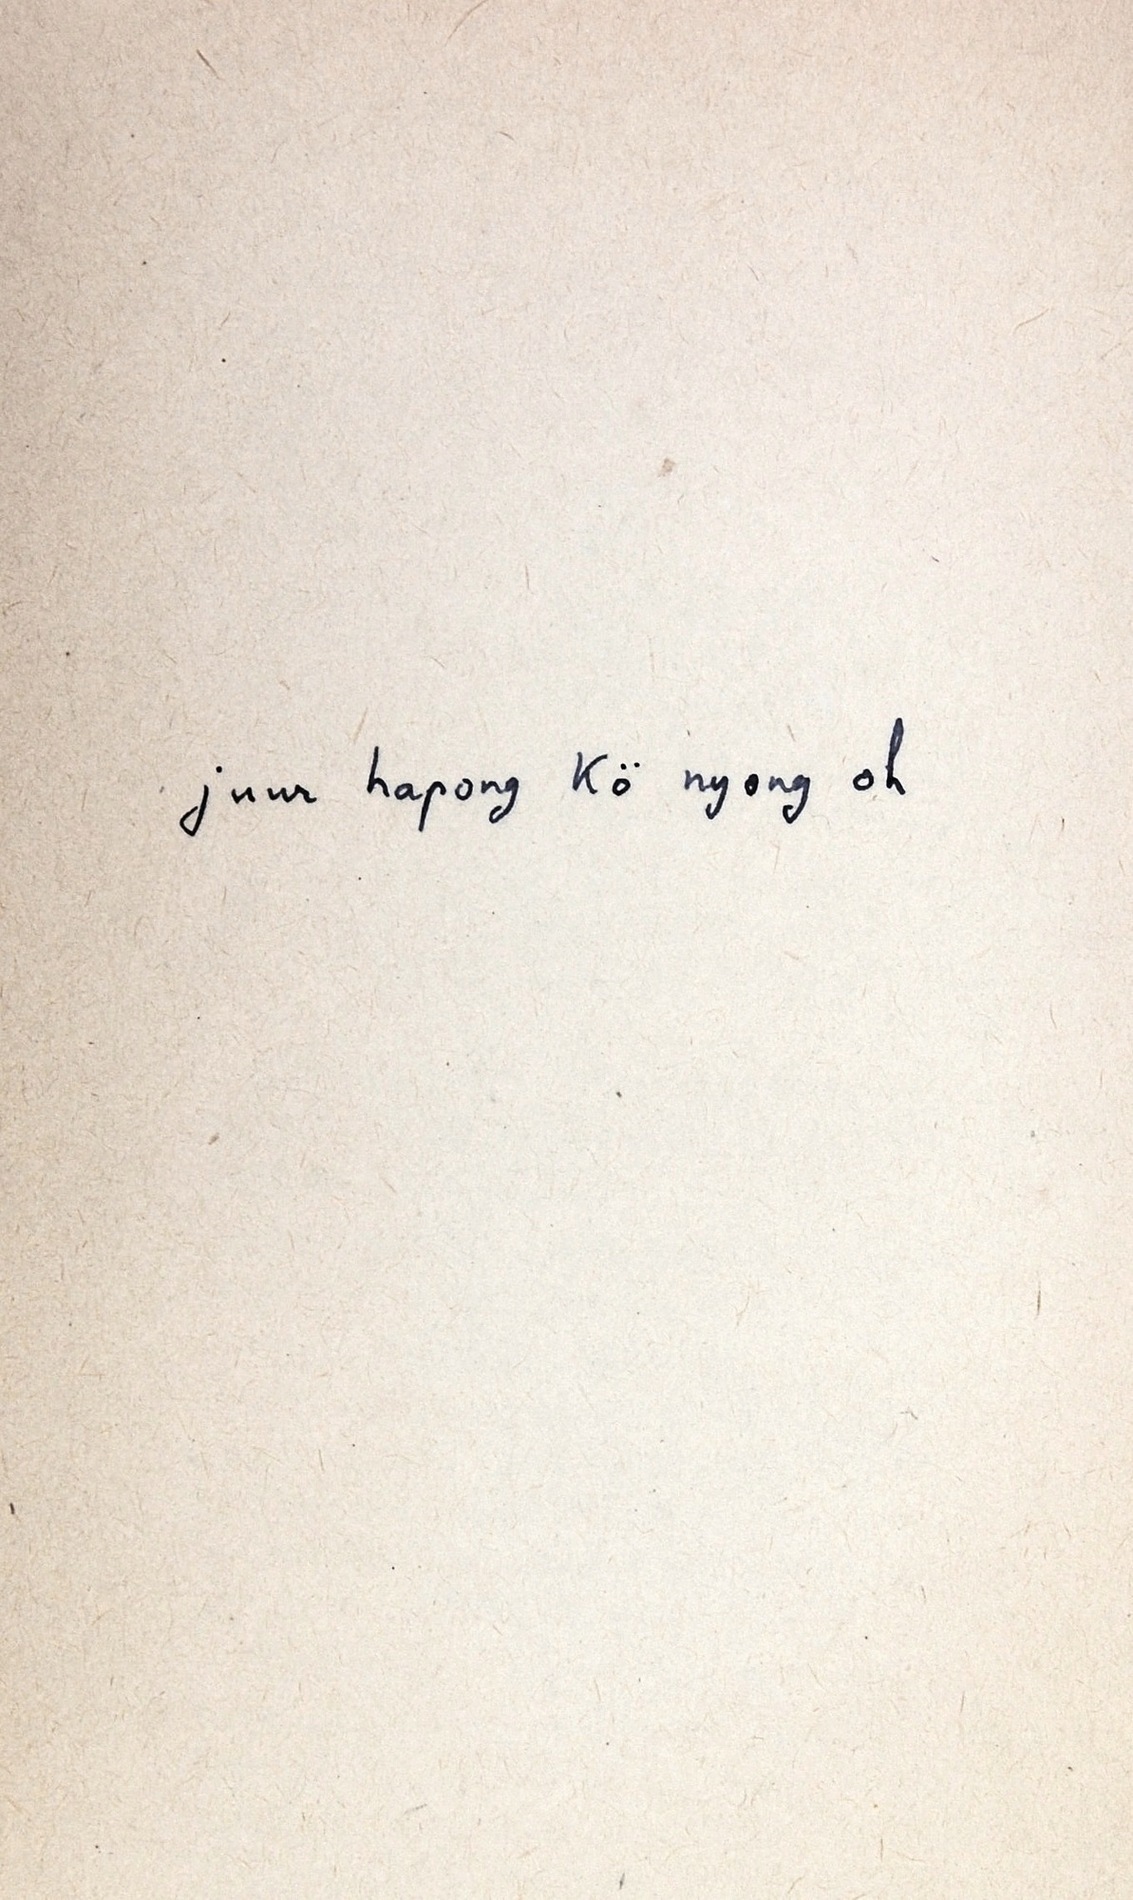 juur hapong Kö nyong oh